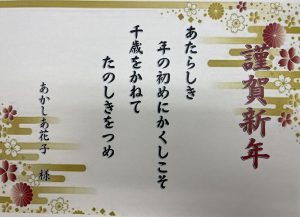 謹賀新年
あたらしき
年の初めにかくしこそ
千歳をかねて
たのしきをつめ
あかしあ花子 様